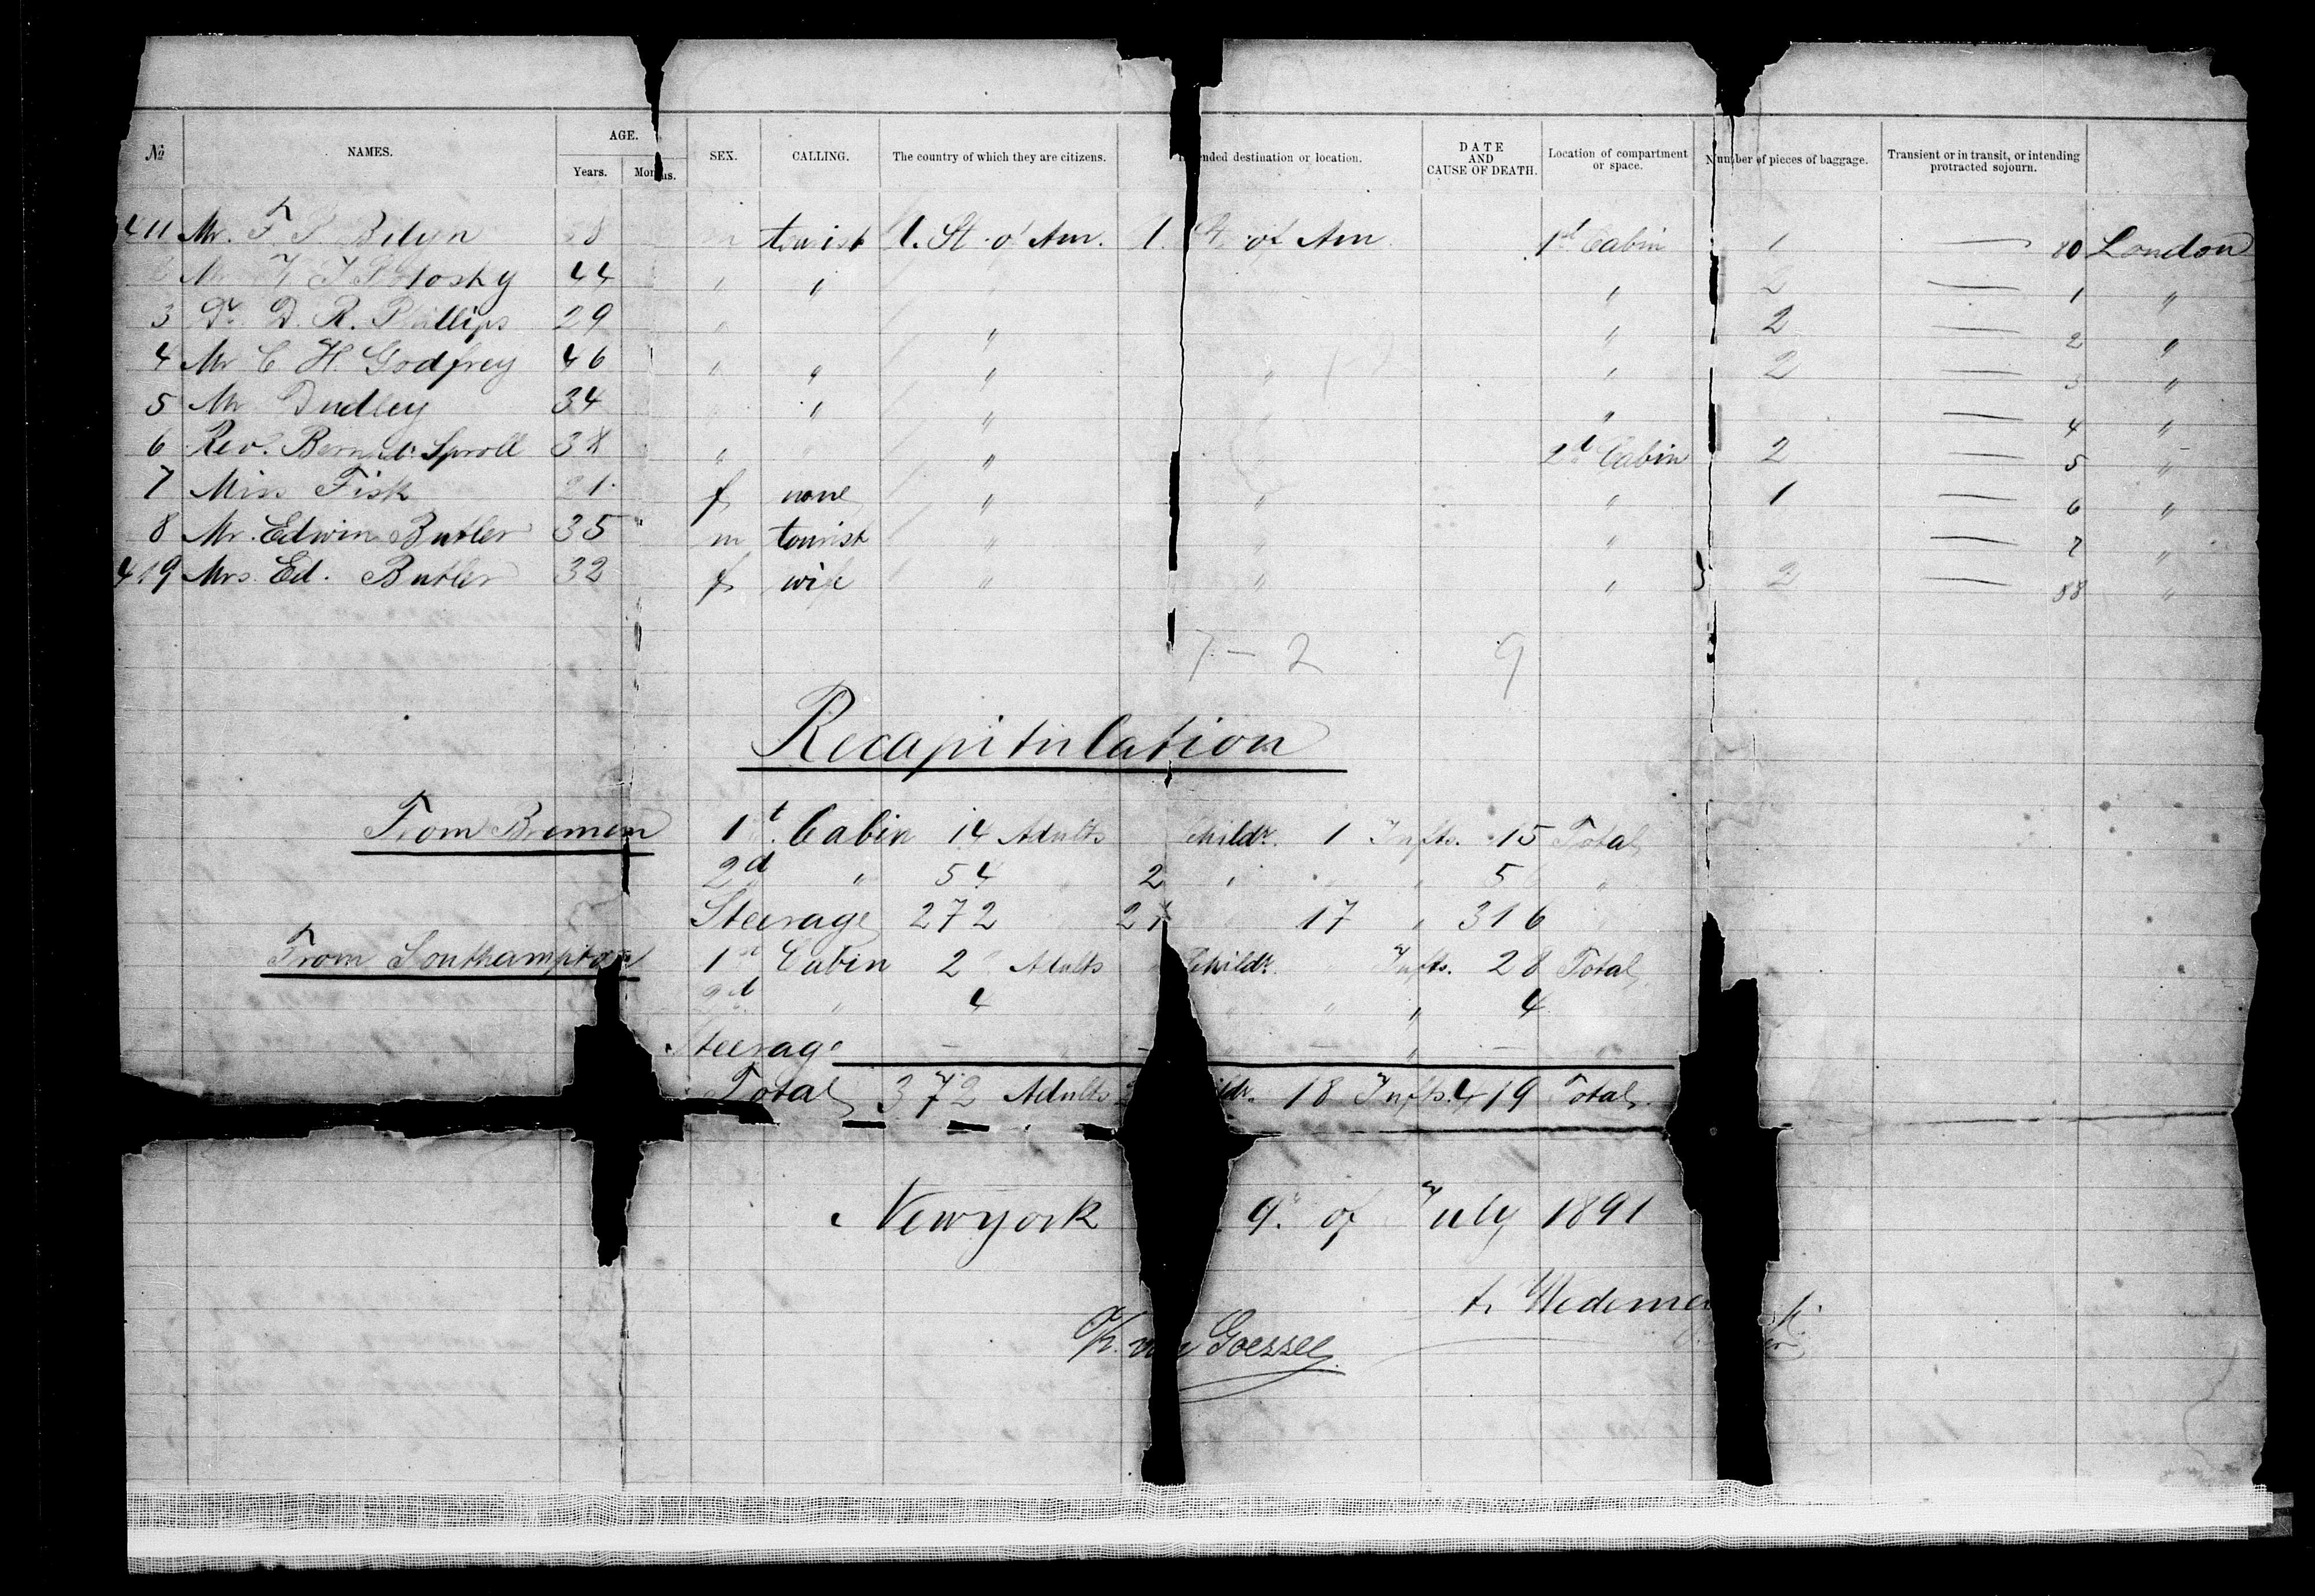 No NAMES. AGE. Years. SEX. CALLING. The country of which they are citizens. ended destination or location. DATE AND CAUSE OF DEATH. Location of compartment or space. Number of pieces of baggage. Transient or in transit, or intending protracted sojourn.
411 Mr. F. 8 m tourist St. o' Am. St. of Am. 1st Cabin 1 — 80 London
2 44 " " " 2 — 1 "
3 Dr. D. R. Phillips 29 " " " 2 — 2 "
4 Mr C. H. Godfrey 46 " " " " " 2 — 3 "
5 Mr Dudley 34 " " " — 4 "
6 Rev. Sproll 38 " " 2d Cabin 2 — 5 "
7 Miss Fisk 21 f none " " " 1 — 6 "
8 Mr. Edwin Butler 35 m tourist " " " — 7 "
419 Mrs. Ed. Butler 32 f wife " " " } 2 — 88 "
7 — 2 9
Recapitulation
From Bremen 1t. Cabin 14 Adults Childr. 1 Infts. 15 Total
2d " 54 " 2 " " 5 "
Steerage 272 17 " 316
From Southampton 1st Cabin 2 Adults Childr. Infts. 28 Total
2d " 4 " " " 4
Steerage — — — " —
Total 372 Adults ildr. 18 Infts. 419 Total
Newyork 9. of July 1891